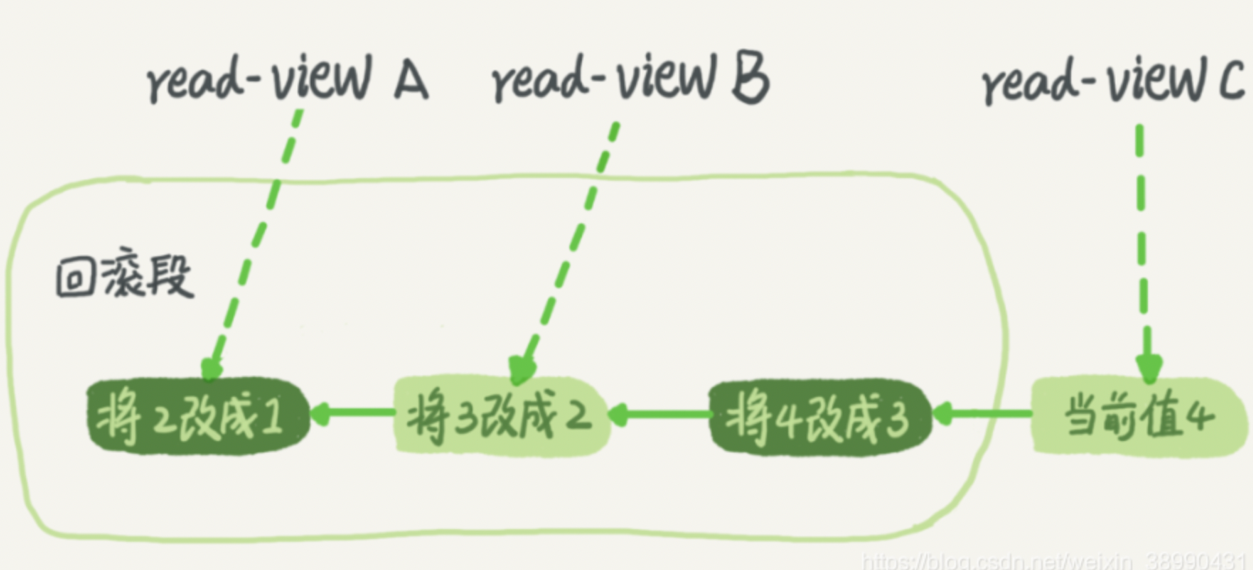 read-view A
read-view B
read-view C
回滚段
将2改成1
将3改成2
将4改成3
当前值4
https://blog.csdn.net/weixin_38990431